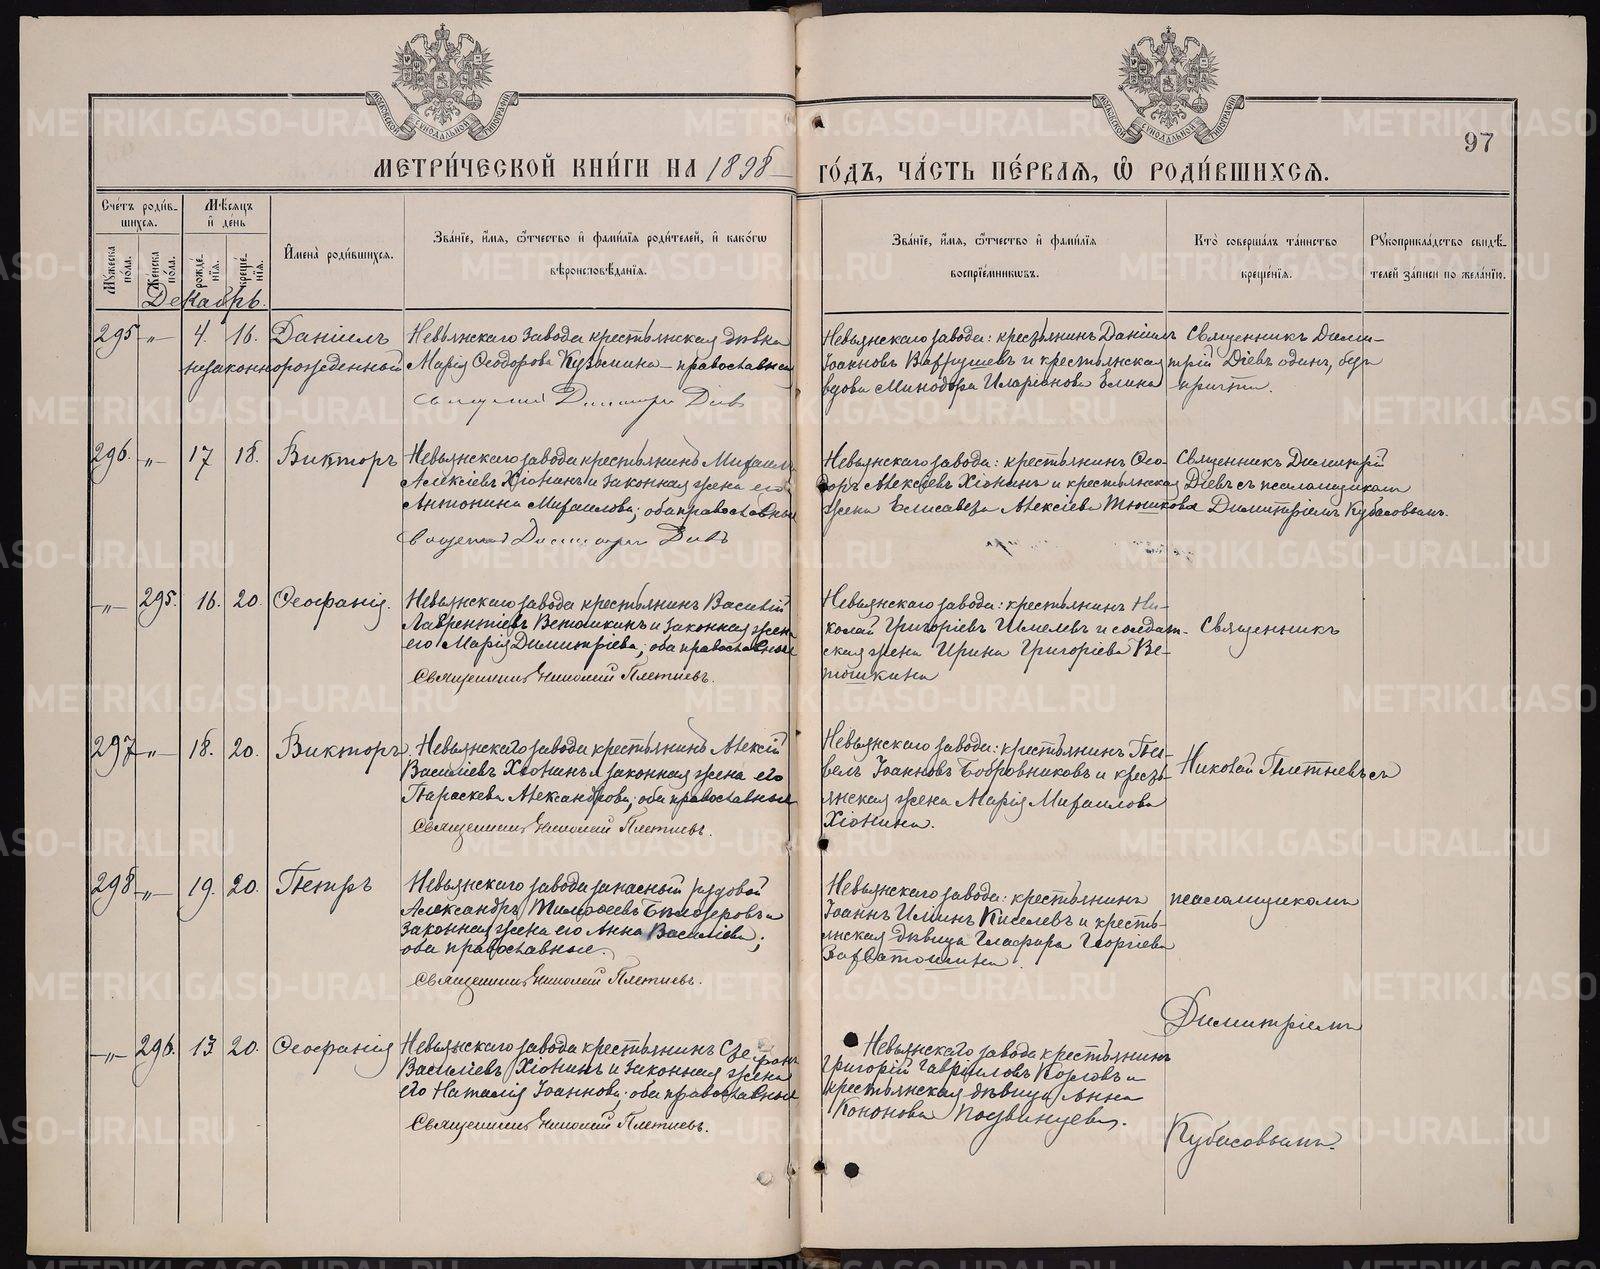 97
МЕТРИ́ЧЕСКОЙ КНИ́ГИ НА 1898 ГО́ДЪ, ЧА́СТЬ ПЕ́РВАѦ, Ѡ҆ РОДИ́ВШИХСѦ.
МОСКОВСКОЙ СѴНОДАЛЬНОЙ ТИПОГРАФІИ
МОСКОВСКОЙ СѴНОДАЛЬНОЙ ТИПОГРАФІИ
Сче́тъ роди́в-
шихся.
Мꙋ́жеска по́ла.
Же́нска по́ла.
Мѣ́сяцъ
и҆ де́нь
рожде́-
нїѧ.
креще́-
нїѧ.
И҆мена̀ роди́вшихся.
Зва́нїе, и҆́мѧ, ѻ҆́тчество и҆ фами́лїѧ роди́телей, и҆ како́гѡ
вѣроисповѣ́данїѧ.
Зва́нїе, и҆́мѧ, ѻ҆́тчество и҆ фами́лїѧ
воспрїе́мникѡвъ.
Кто̀ соверша́лъ та́инство
креще́нїѧ.
Рꙋкоприкла́дство свидѣ́-
телей за́писи по жела́нїю.
Декабрь.
295 „ 4. 16. Данiилъ
незаконнорожденный
Невьянскаго завода крестьянская дѣвка
Марія Ѳеодорова Кузьмина – православная
Священникъ Димитрій Діевъ
Невьянскаго завода: крестьянинъ Даніилъ
Іоанновъ Вахрушевъ и крестьянская
вдова Минодора Иларіонова Елина
Священникъ Дими-
трій Діевъ одинъ, безъ
причта.
296. „ 17 18. Викторъ
Невьянскаго завода крестьянинъ Михаилъ
Алексіевъ Хіонинъ и законная жена его
Антонина Михаилова; оба православные
Священникъ Димитрій Діевъ
Невьянскаго завода: крестьянинъ Ѳео-
доръ Алексіевъ Хіонинъ и крестьянская
жена Елисавета Алексіева Тюшкова
Священникъ Димитрій
Діевъ съ псаломщикомъ
Димитріемъ Кубасовымъ.
„ 295. 16. 20. Ѳеофанія.
Невьянскаго завода крестьянинъ Василій
Лаврентіевъ Ветошкинъ и законная жена
его Марія Димитріева; оба православные
Священникъ Николай Плетневъ.
Невьянскаго завода: крестьянинъ Ни-
колай Григоріевъ Шмелевъ и солдат-
ская жена Ирина Григоріева Ве-
тошкина
Священникъ
297 „ 18. 20. Викторъ
Невьянскаго завода крестьянинъ Алексій
Василіевъ Хіонинъ и законная жена его
Параскева Александрова; оба православные
Священникъ Николай Плетневъ.
Невьянскаго завода: крестьянинъ Па-
велъ Іоанновъ Бобровниковъ и кресть-
янская жена Марія Михаилова
Хіонина.
Николай Плетневъ съ
298 „ 19. 20. Петръ
Невьянскаго завода запасный рядовой
Александръ Тимоѳеевъ Бѣлозеровъ и
законная жена его Анна Василіева;
оба православные.
Священникъ Николай Плетневъ.
Невьянскаго завода: крестьянинъ
Іоаннъ Ильинъ Киселевъ и кресть-
янская дѣвица Глафира Георгіева
псаломщикомъ
Димитріемъ
„ 296. 13 20. Ѳеофанія
Невьянскаго завода крестьянинъ
Василіевъ Хіонинъ и законная жена
его Наталія Іоаннова; оба православные
Священникъ Николай Плетневъ.
Невьянскаго завода крестьянинъ
Григорій Гавріиловъ Козловъ и
крестьянская дѣвица Анна
Кононова Подвинцева.
Кубасовымъ.
METRIKI.GASO-URAL.RU